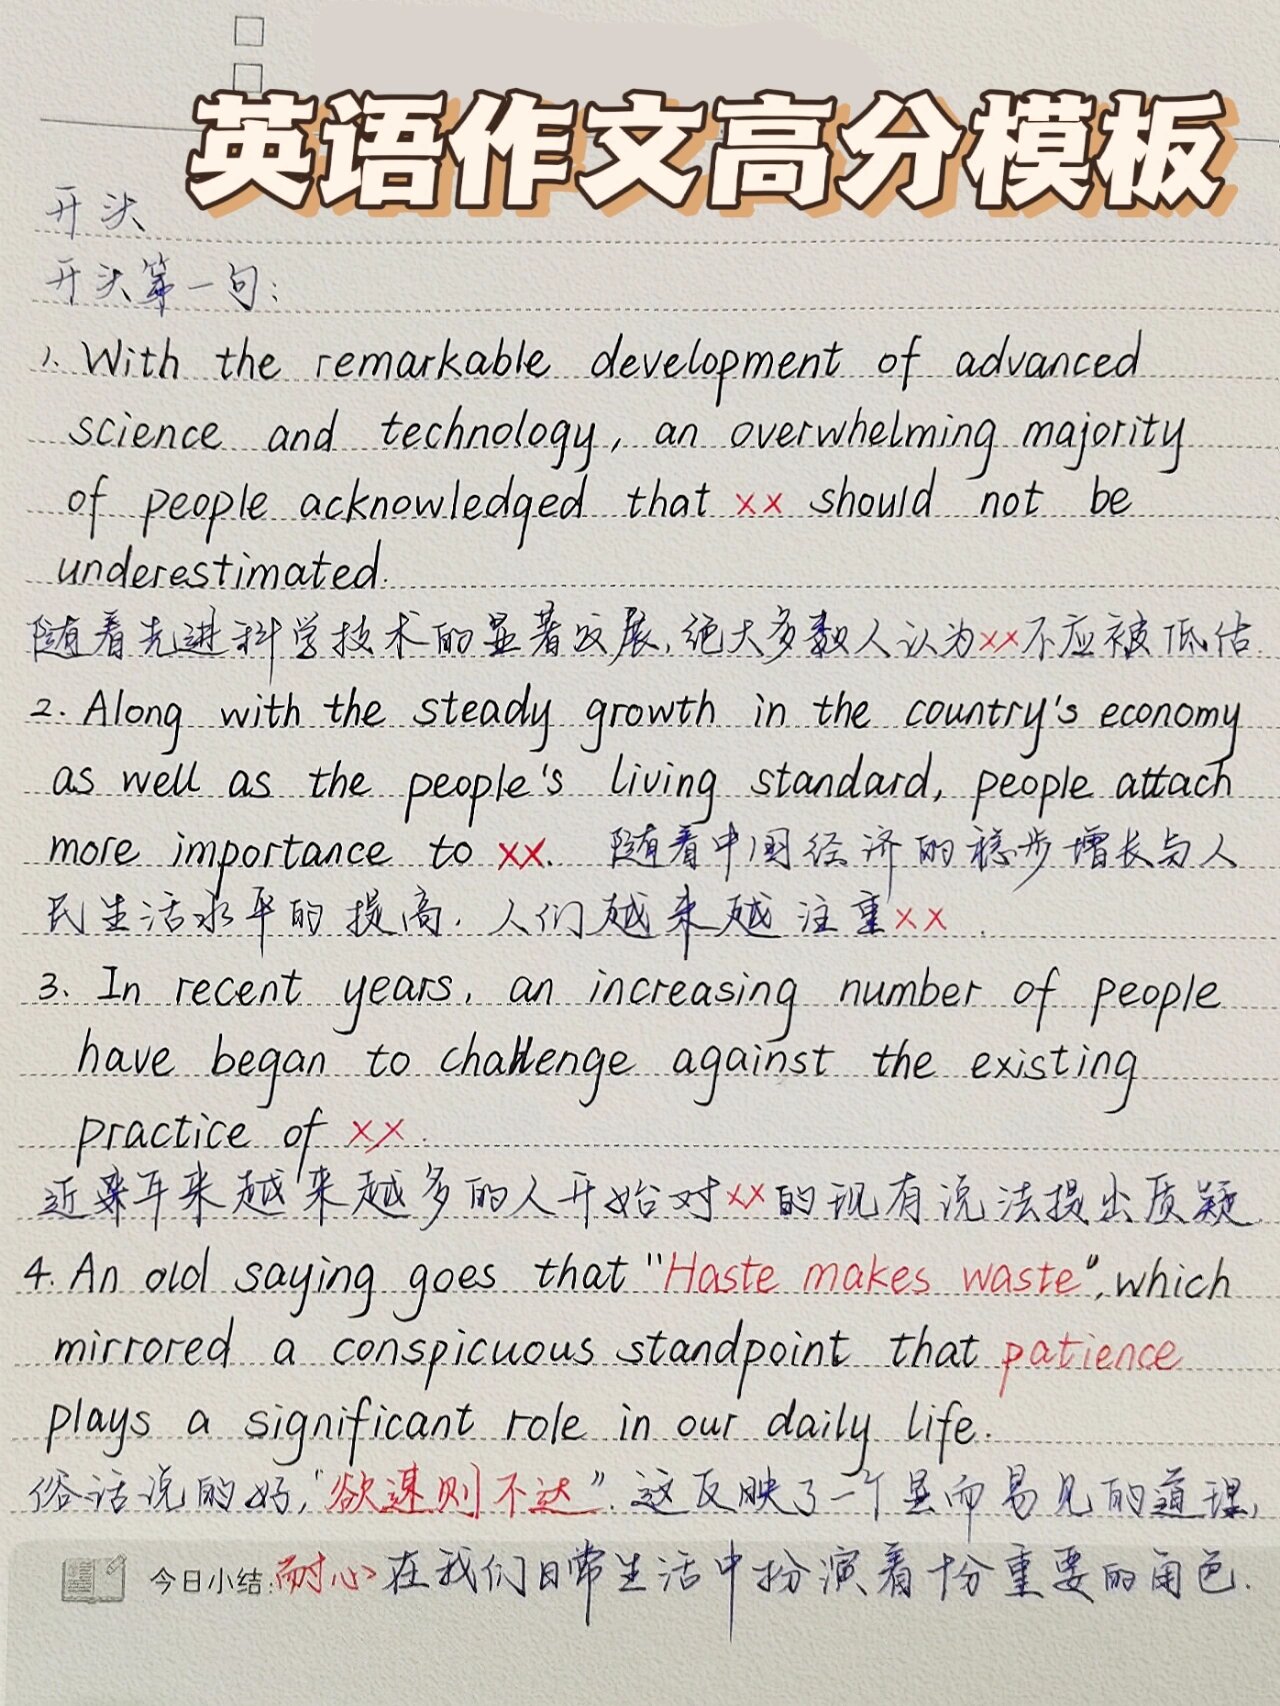 英语作文高分模板
开头
开头第一句:
1. With the remarkable development of advanced
science and technology, an overwhelming majority
of people acknowledged that xx should not be
underestimated.
随着先进科学技术的显著发展,绝大多数人认为xx不应被低估.
2. Along with the steady growth in the country's economy
as well as the people's living standard, people attach
more importance to xx. 随着中国经济的稳步增长与人
民生活水平的提高,人们越来越注重xx.
3. In recent years, an increasing number of people
have began to challenge against the existing
practice of xx.
近年来越来越多的人开始对xx的现有说法提出质疑.
4. An old saying goes that "Haste makes waste", which
mirrored a conspicuous standpoint that patience
plays a significant role in our daily life.
俗话说的好,"欲速则不达".这反映了一个显而易见的道理,
今日小结:耐心在我们日常生活中扮演着十分重要的角色.